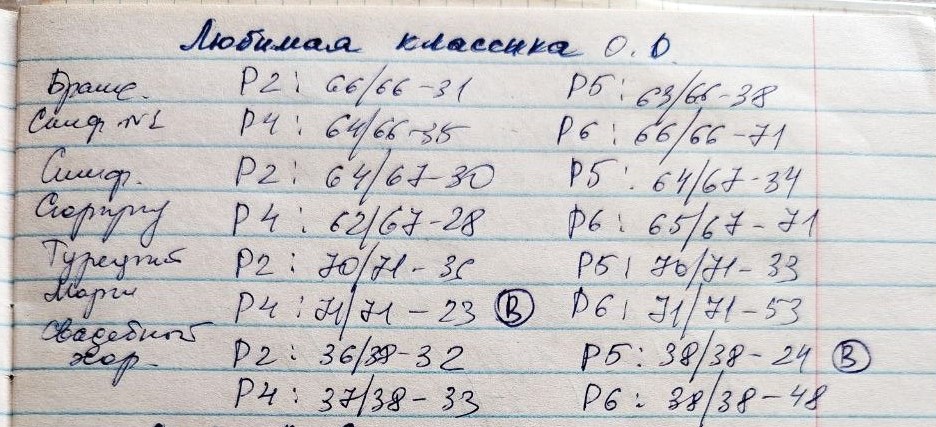 Любимая классика О. D.
Брамс. P2: 66/66-31 P5: 63/66-38
Симф. №1 P4: 64/66-35 P6: 66/66-71
Симф. P2: 64/67-30 P5: 64/67-34
Сюрприз P4: 62/67-28 P6: 65/67-71
Турецкий P2: 70/71-36 P5: 70/71-33
Марш P4: 71/71-23 В P6: 71/71-53
Свадебный
хор. P2: 36/38-32 P5: 38/38-24 В
P4: 37/38-33 P6: 38/38-48